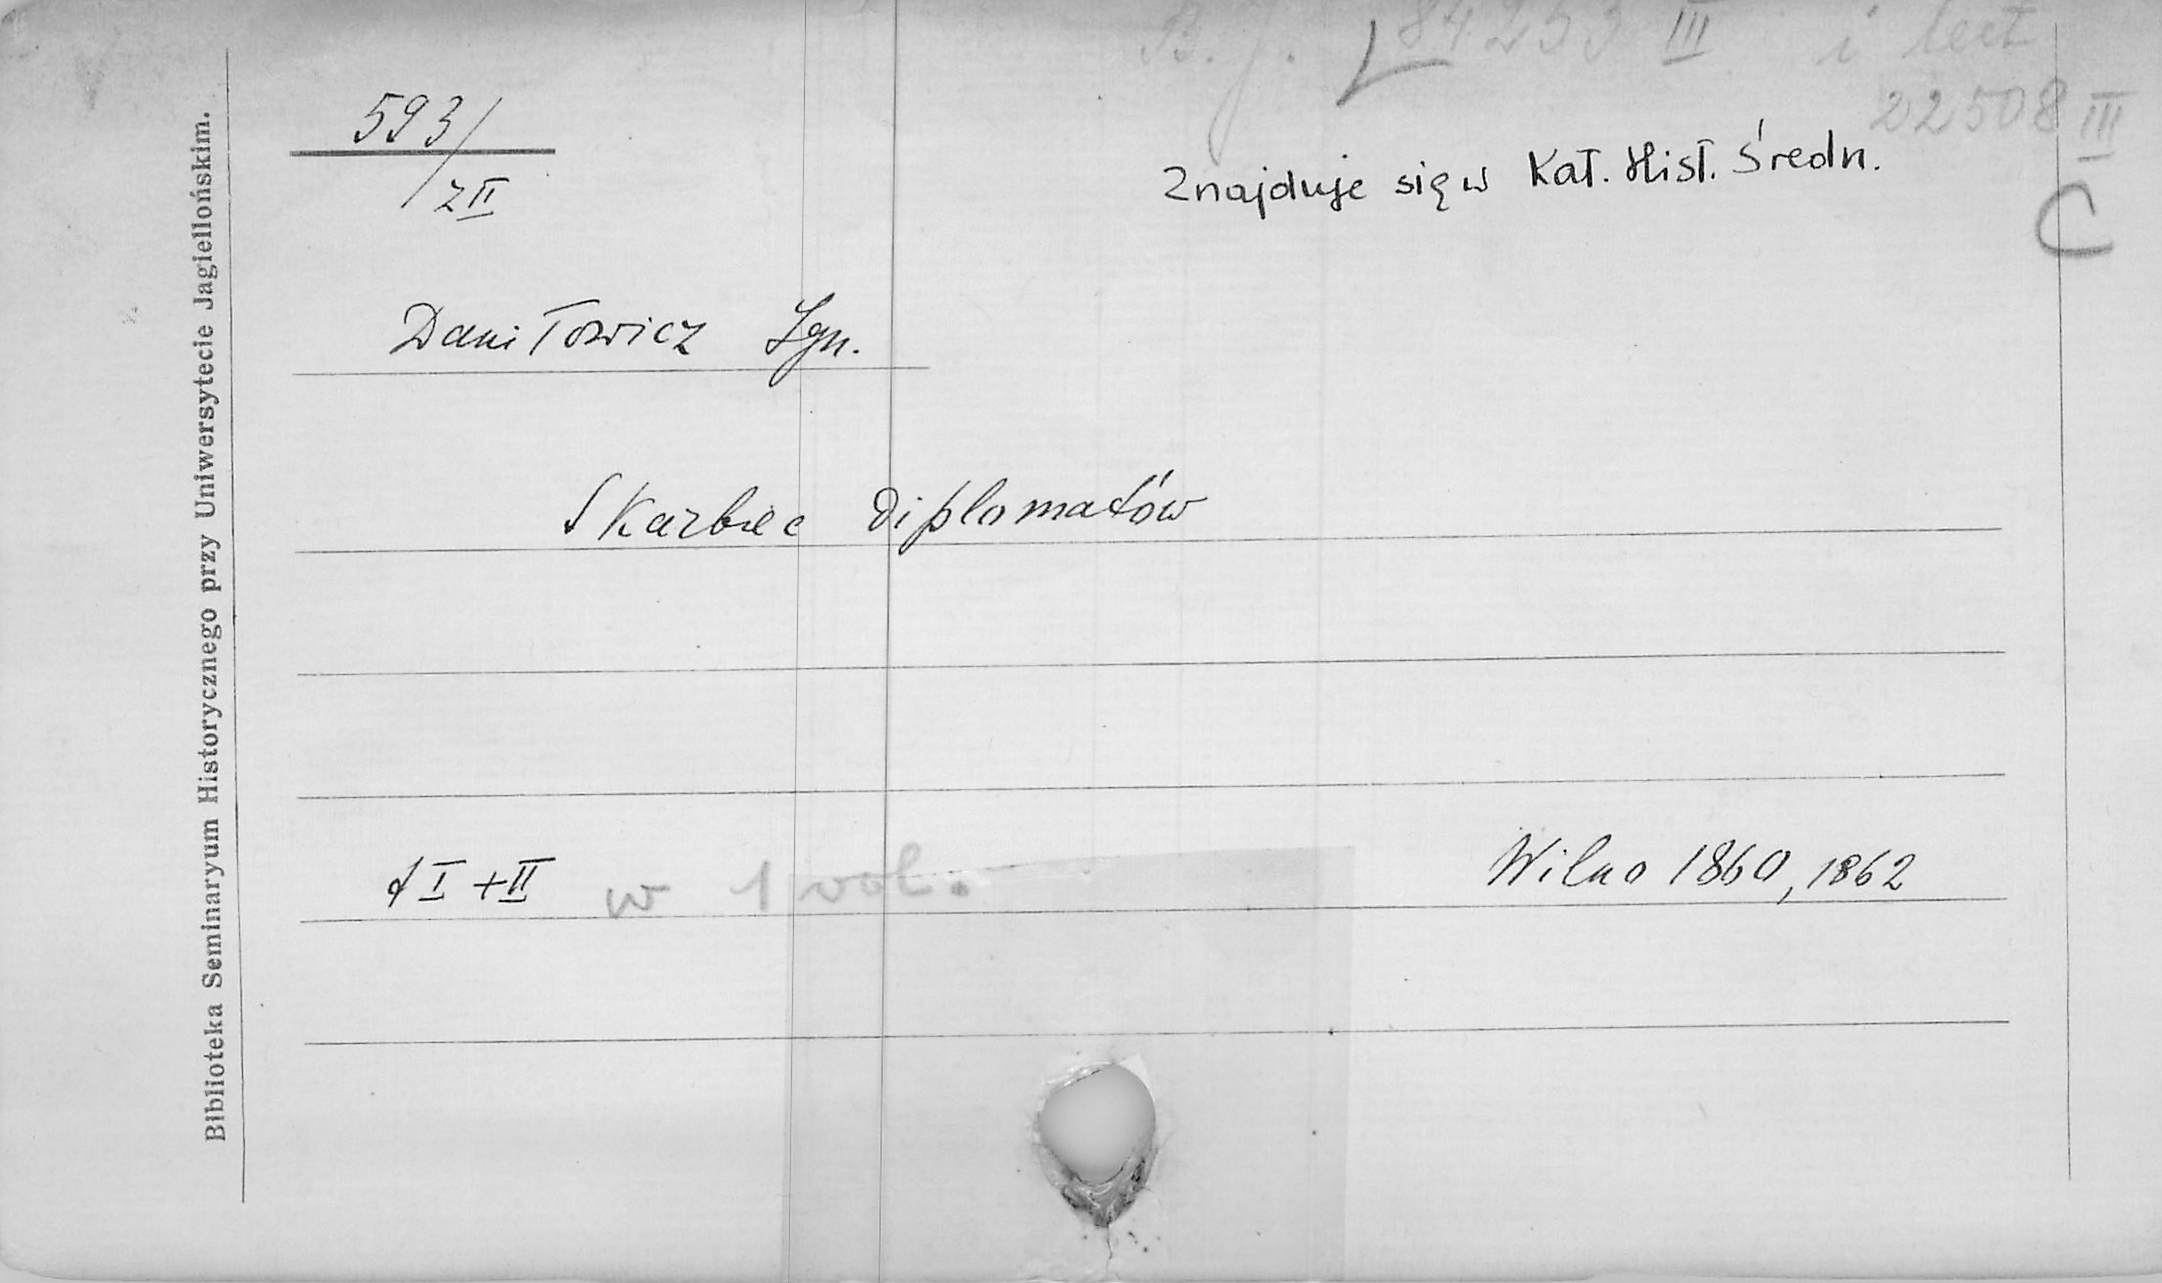 B. J. 84253 III i lect
22508 III
593/
z II
Znajduje się w Kat. Hist. Średn.
C
Daniłowicz Ign.
Skarbiec diplomatów
t I + II w 1 vol.
Wilno 1860, 1862
Biblioteka Seminaryum Historycznego przy Uniwersytecie Jagiellońskim.